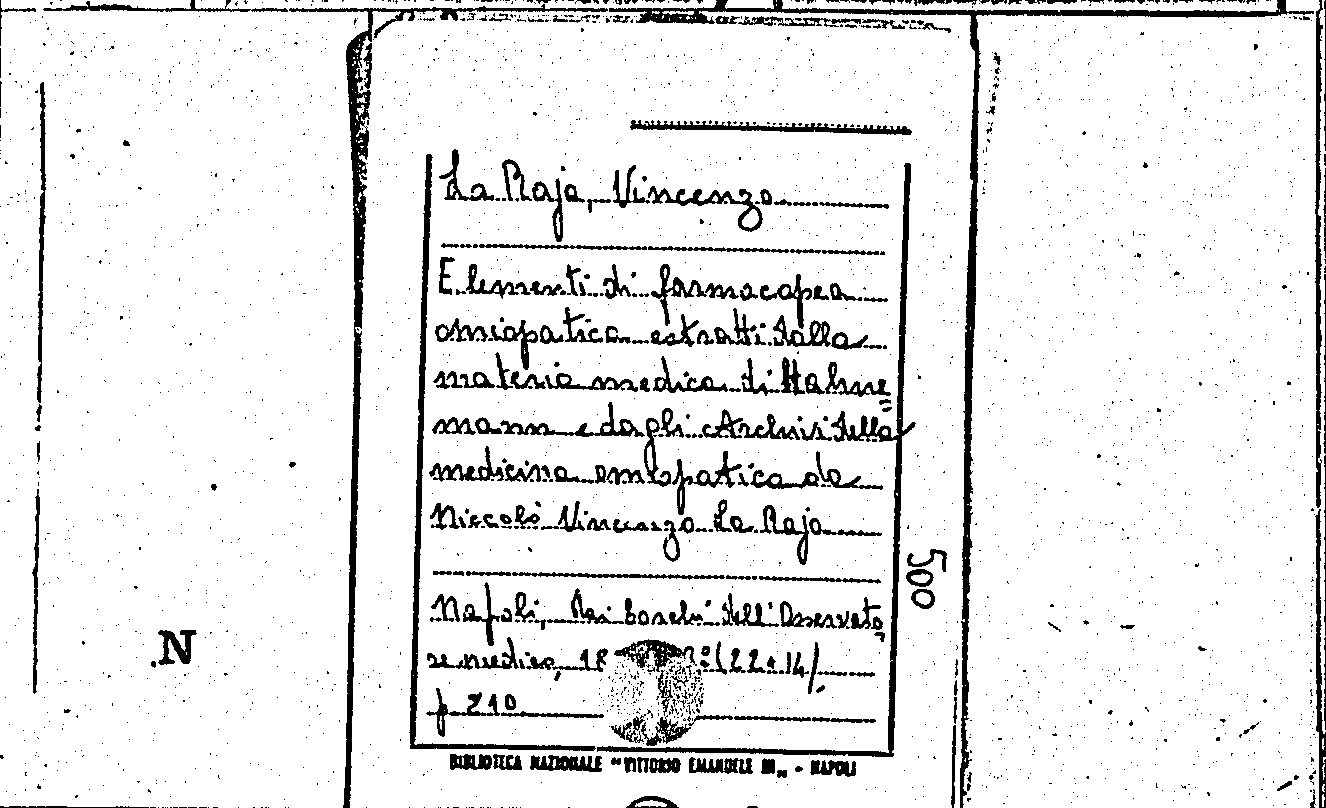 La Raja, Vincenzo
Elementi di farmacopea
omiopatica estratti dalla
materia medica di Hahne=
mann e dagli Archivi della
medicina omiopatica da
Niccolò Vincenzo La Raja
Napoli, Dai Torchi dell'Osservato=
re medico, 18 (22×14)
p 210
500
.N
BIBLIOTECA NAZIONALE "VITTORIO EMANUELE III„ - NAPOLI